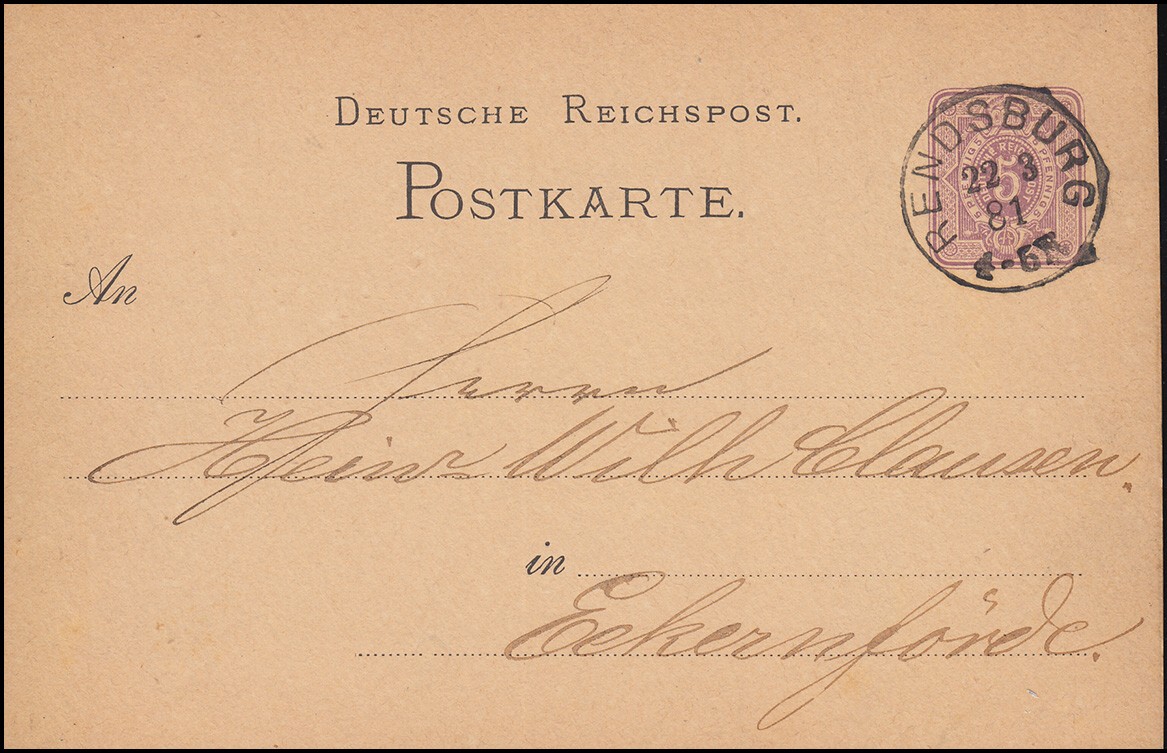 DEUTSCHE REICHSPOST.
POSTKARTE.
RENDSBURG
22 3
81
4-5N
PFENNIG 5
5
An
Herrn
Heinr Wilh Clausen.
in
Eckernförde.